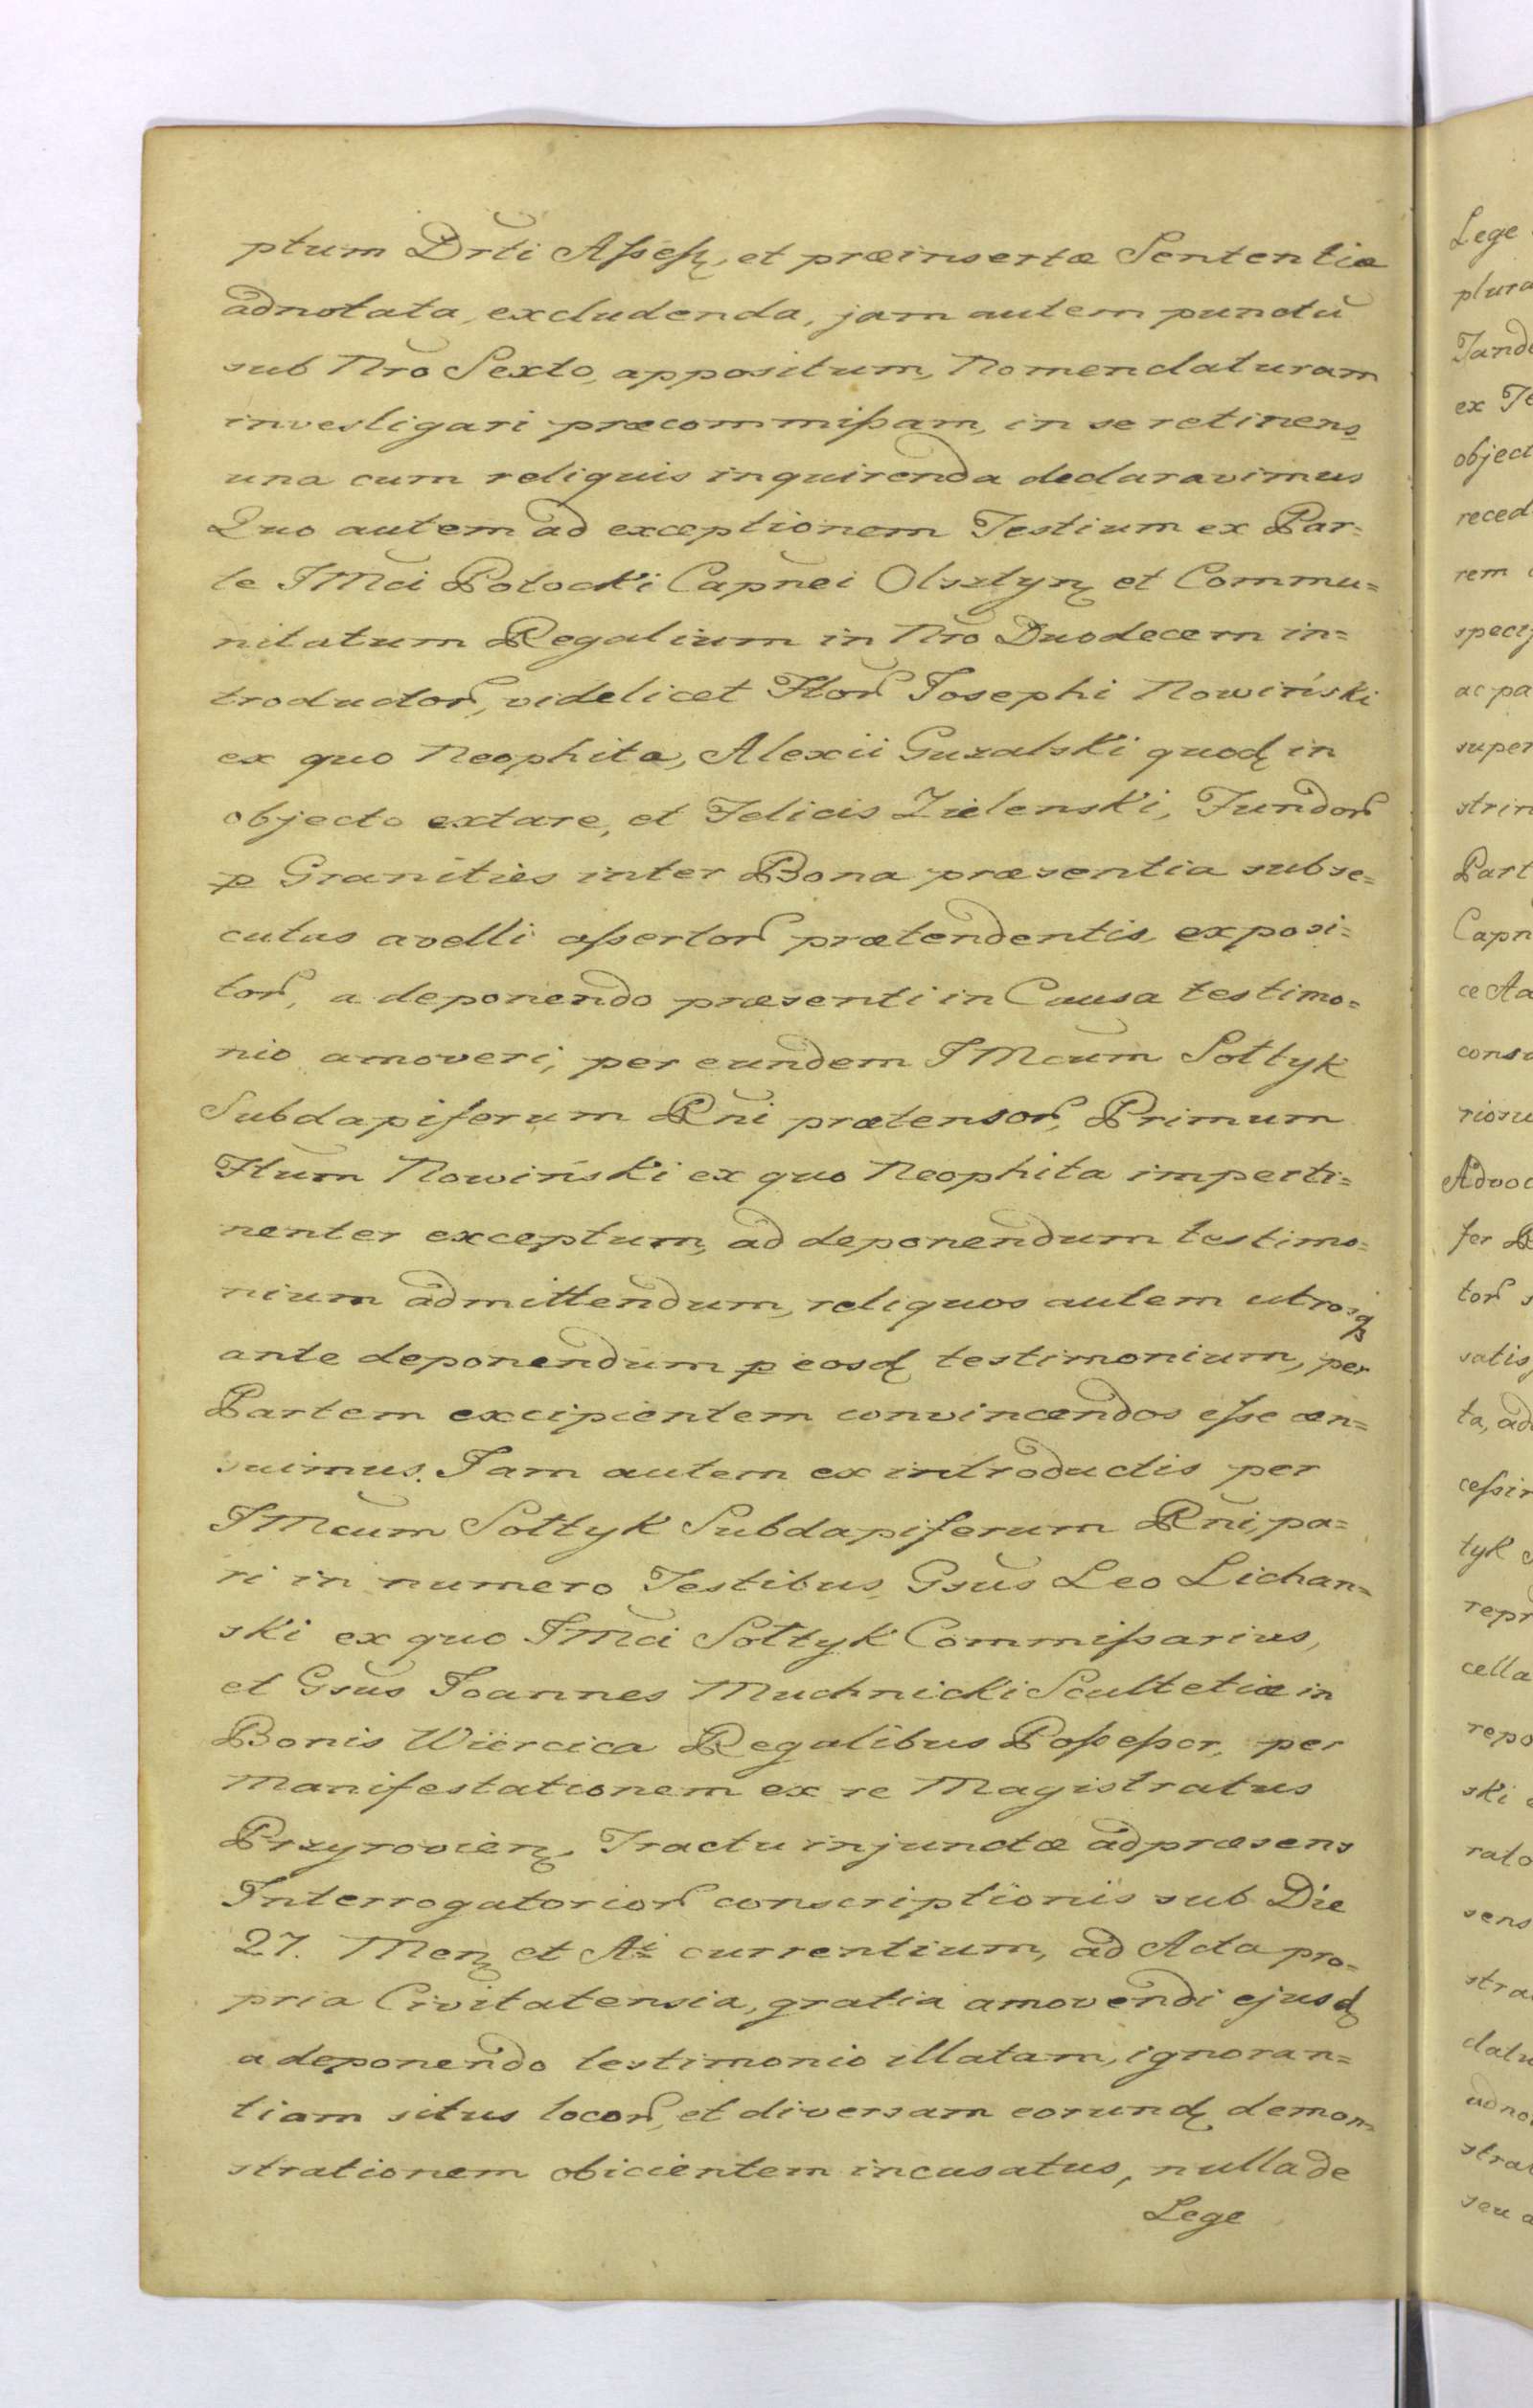 ptum Drti Assess, et præinsertæ Sententiæ
adnotata, excludenda, jam autem punctũ
sub Nro Sexto, appositum, Nomenclaturam
investigari præcommissam, in se retinens
una cum reliquis inquirenda declaravimus
Quo autem ad exceptionem Testium ex Par=
te JMci Potocki Capnei Olsztyn et Commu=
nitatum Regalium in Nro Duodecem in=
troductor, videlicet Ftor Josephi Nowiński
ex quo Neophita, Alexii Guzalski quod in
objecto extare, et Felicis Zielenski, Fundor
p Granities inter Bona præsentia subse=
cutas avelli assertor prætendentis exposi=
tor, a deponendo præsenti in Causa testimo=
nio amoveri, per eundem JMcum Sołtyk
Subdapiferum Rni prætensor, Primum
Ftum Nowiński ex quo Neophita imperti=
nenter exceptum, ad deponendum testimo=
nium admittendum, reliquos autem utrosq
ante deponendum p eosd testimonium, per
Partem excipientem convincendos esse cen=
suimus. Jam autem ex introductis per
JMcum Sołtyk Subdapiferum Rni, pa=
ri in numero Testibus, Gsus Leo Lichan=
ski ex quo JMci Sołtyk Commissarius,
et Gsus Joannes Muchnicki Scultetiæ in
Bonis Wiercica Regalibus Possessor, per
Manifestationem ex re Magistratus
Przyrovien, Tractu injunctæ ad præsens
Interrogatorior conscriptionis sub Die
27. Men et Ai currentium, ad Acta pro=
pria Civitatensia, gratia amovendi ejusd
a deponendo testimonio illatam, ignoran=
tiam situs locor, et diversam eorund demon=
strationem obicientem incusatus, nulla de
Lege
Lege
plura
Tand
ex Te
object
reced
rem
specif
ac pa
super
strin
Part
Capn
ce Aa
cons
rioru
Advoc
fer R
tor s
satis
ta, ad
cessir
tyk
repr
cella
repo
ski
rato
sens
stra
datu
adno
strat
seu a